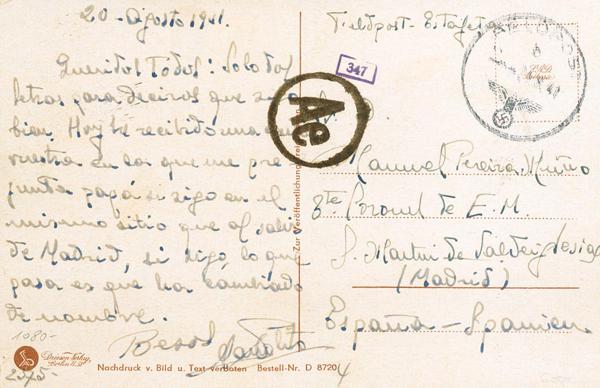 20-Agosto 1941.
Queridos Todos: Solo dos
letras para deciros que sigo
bien. Hoy he recibido una
vuestra en la que me pre-
gunta papá si sigo en el
mismo sitio que al salir
de Madrid, si sigo, lo que
pasa es que ha cambiado
de nombre.
Besos
Manolito
Feldpost-Estafeta
347
Ae
FELDPOST
Manuel Pereira
Cte. Coronel de E.M.
S. Martín de Valdeiglesias
(Madrid)
España - Spanien
1080-
2575-
Driesen-Verlag
Berlin
Nachdruck v. Bild u. Text verboten Bestell-Nr. D 8720
4
Zur Veröffentlichung